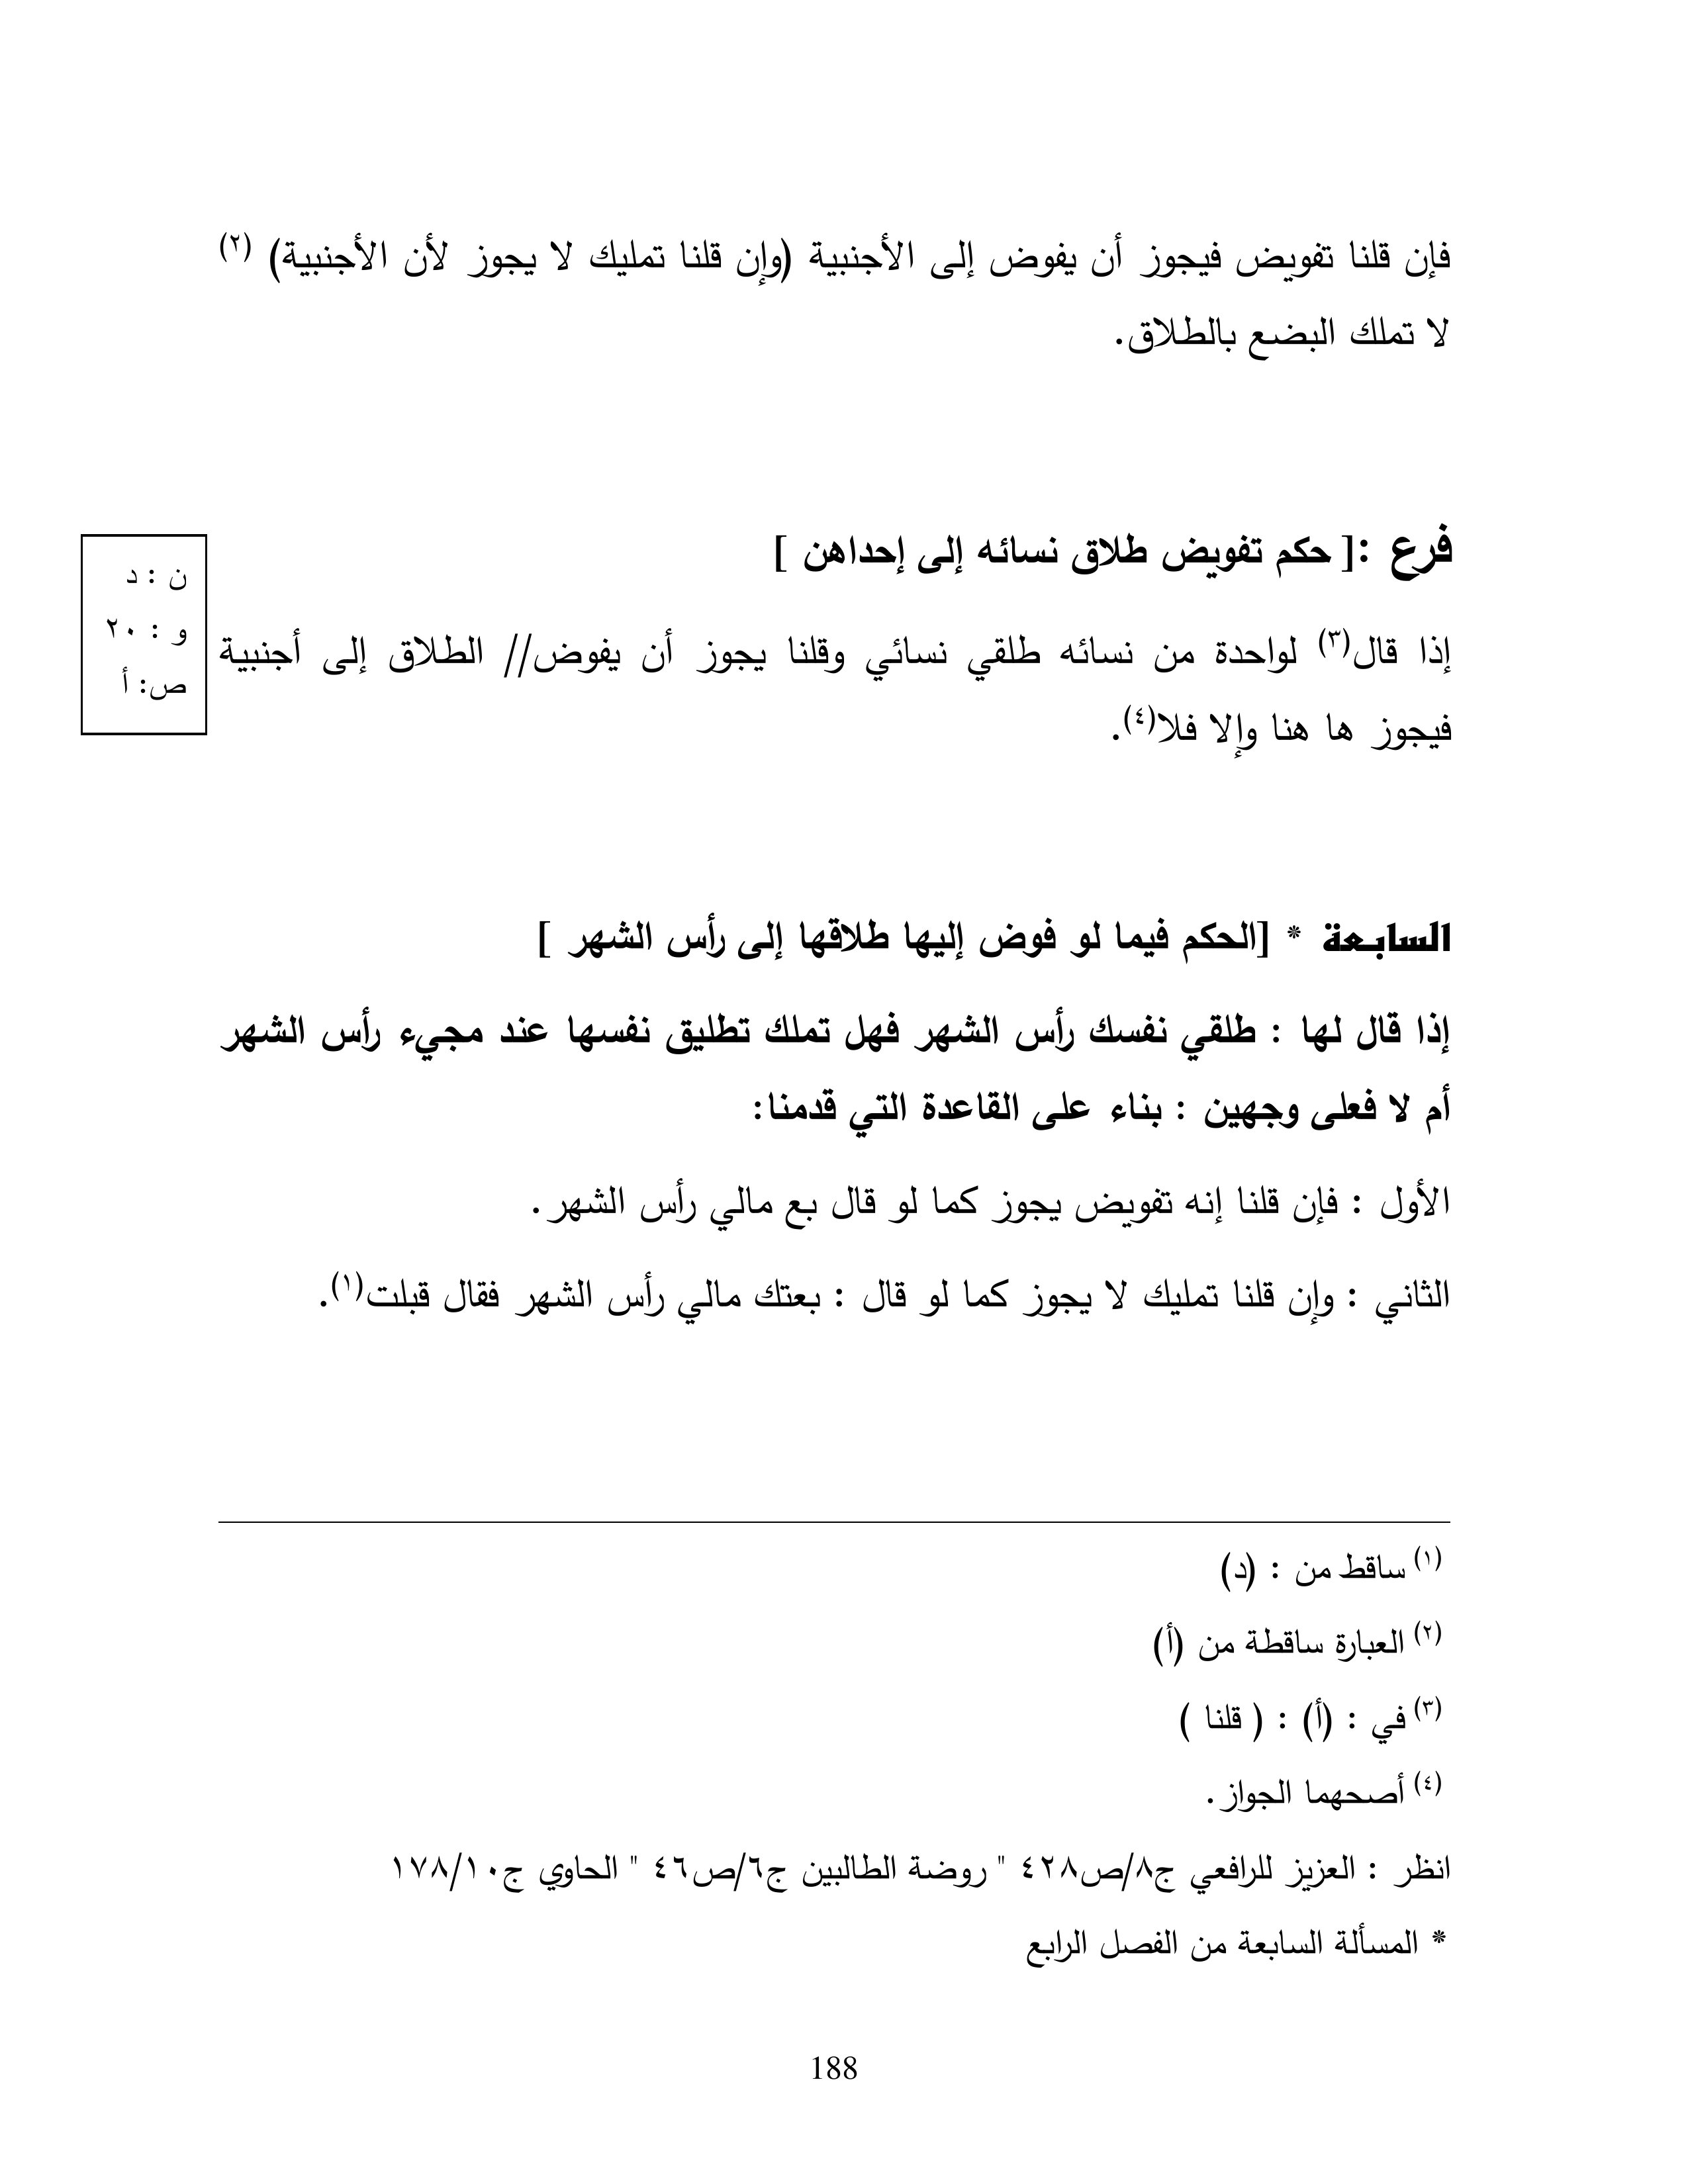 فإن قلنا تفويض فيجوز أن يفوض إلى الأجنبية (وإن قلنا تمليك لا يجوز لأن الأجنبية) (٢)
لا تملك البضع بالطلاق.
فرع :[ حكم تفويض طلاق نسائه إلى إحداهن ]
ن : د
و : ٢٠
ص: أ
إذا قال(٣) لواحدة من نسائه طلقي نسائي وقلنا يجوز أن يفوض// الطلاق إلى أجنبية
فيجوز ها هنا وإلا فلا(٤).
السابعة * [الحكم فيما لو فوض إليها طلاقها إلى رأس الشهر ]
إذا قال لها : طلقي نفسك رأس الشهر فهل تملك تطليق نفسها عند مجيء رأس الشهر
أم لا فعلى وجهين : بناء على القاعدة التي قدمنا:
الأول : فإن قلنا إنه تفويض يجوز كما لو قال بع مالي رأس الشهر.
الثاني : وإن قلنا تمليك لا يجوز كما لو قال : بعتك مالي رأس الشهر فقال قبلت(١).
(١) ساقط من : (د)
(٢) العبارة ساقطة من (أ)
(٣) في : (أ) : ( قلنا )
(٤) أصحهما الجواز.
انظر : العزيز للرافعي ج٨/ص٤٢٨ " روضة الطالبين ج٦/ص٤٦ " الحاوي ج١٧٨/١٠
* المسألة السابعة من الفصل الرابع
188